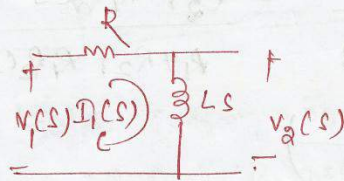 R
+ +
V₁(S) I₁(S) LS V₂(S)
- -